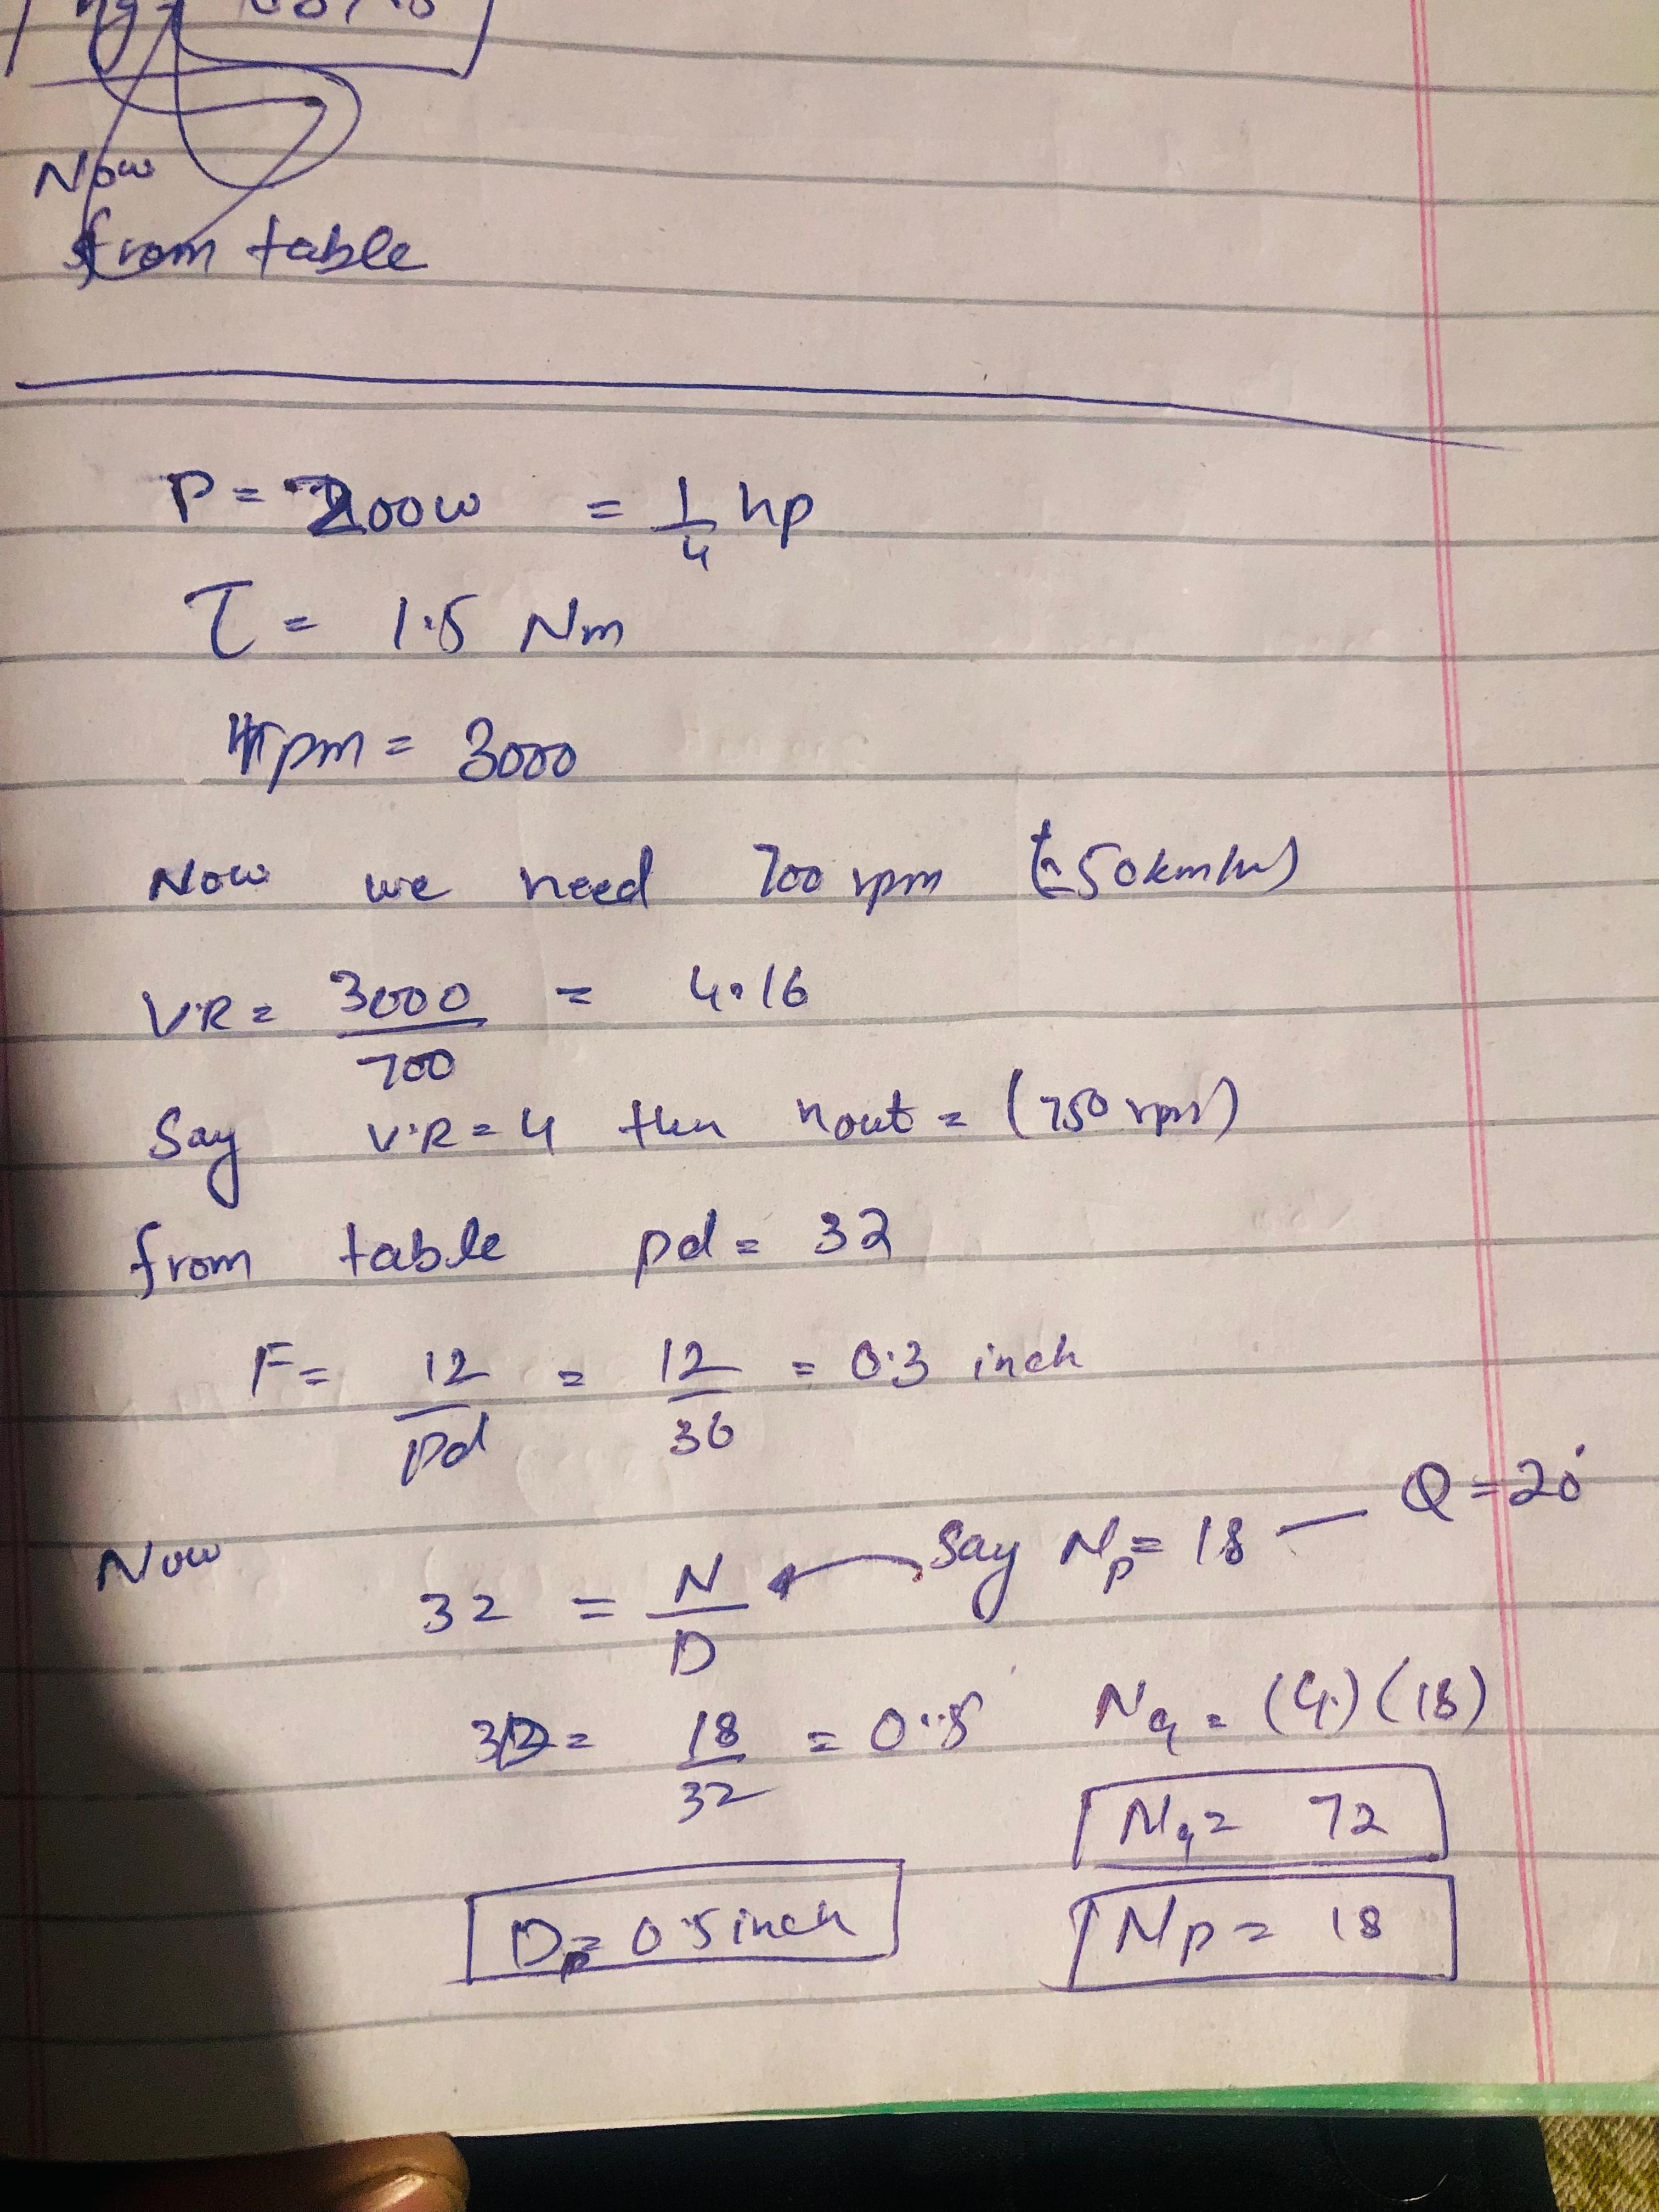 Now
from table
P = 200w = 1/4 hp
τ = 1.5 Nm
rpm = 3000
Now we need 700 rpm (≈50km/hr)
V.R = 3000/700 = 4.16
Say V.R = 4 then nout = (750 rpm)
from table pd = 32
F = 12/Pd = 12/36 = 0.3 inch
Now 32 = N/D Say Np = 18 — Q = 20°
D = 18/32 = 0.5 NG = (4)(18)
NG = 72
Dp = 0.5 inch Np = 18